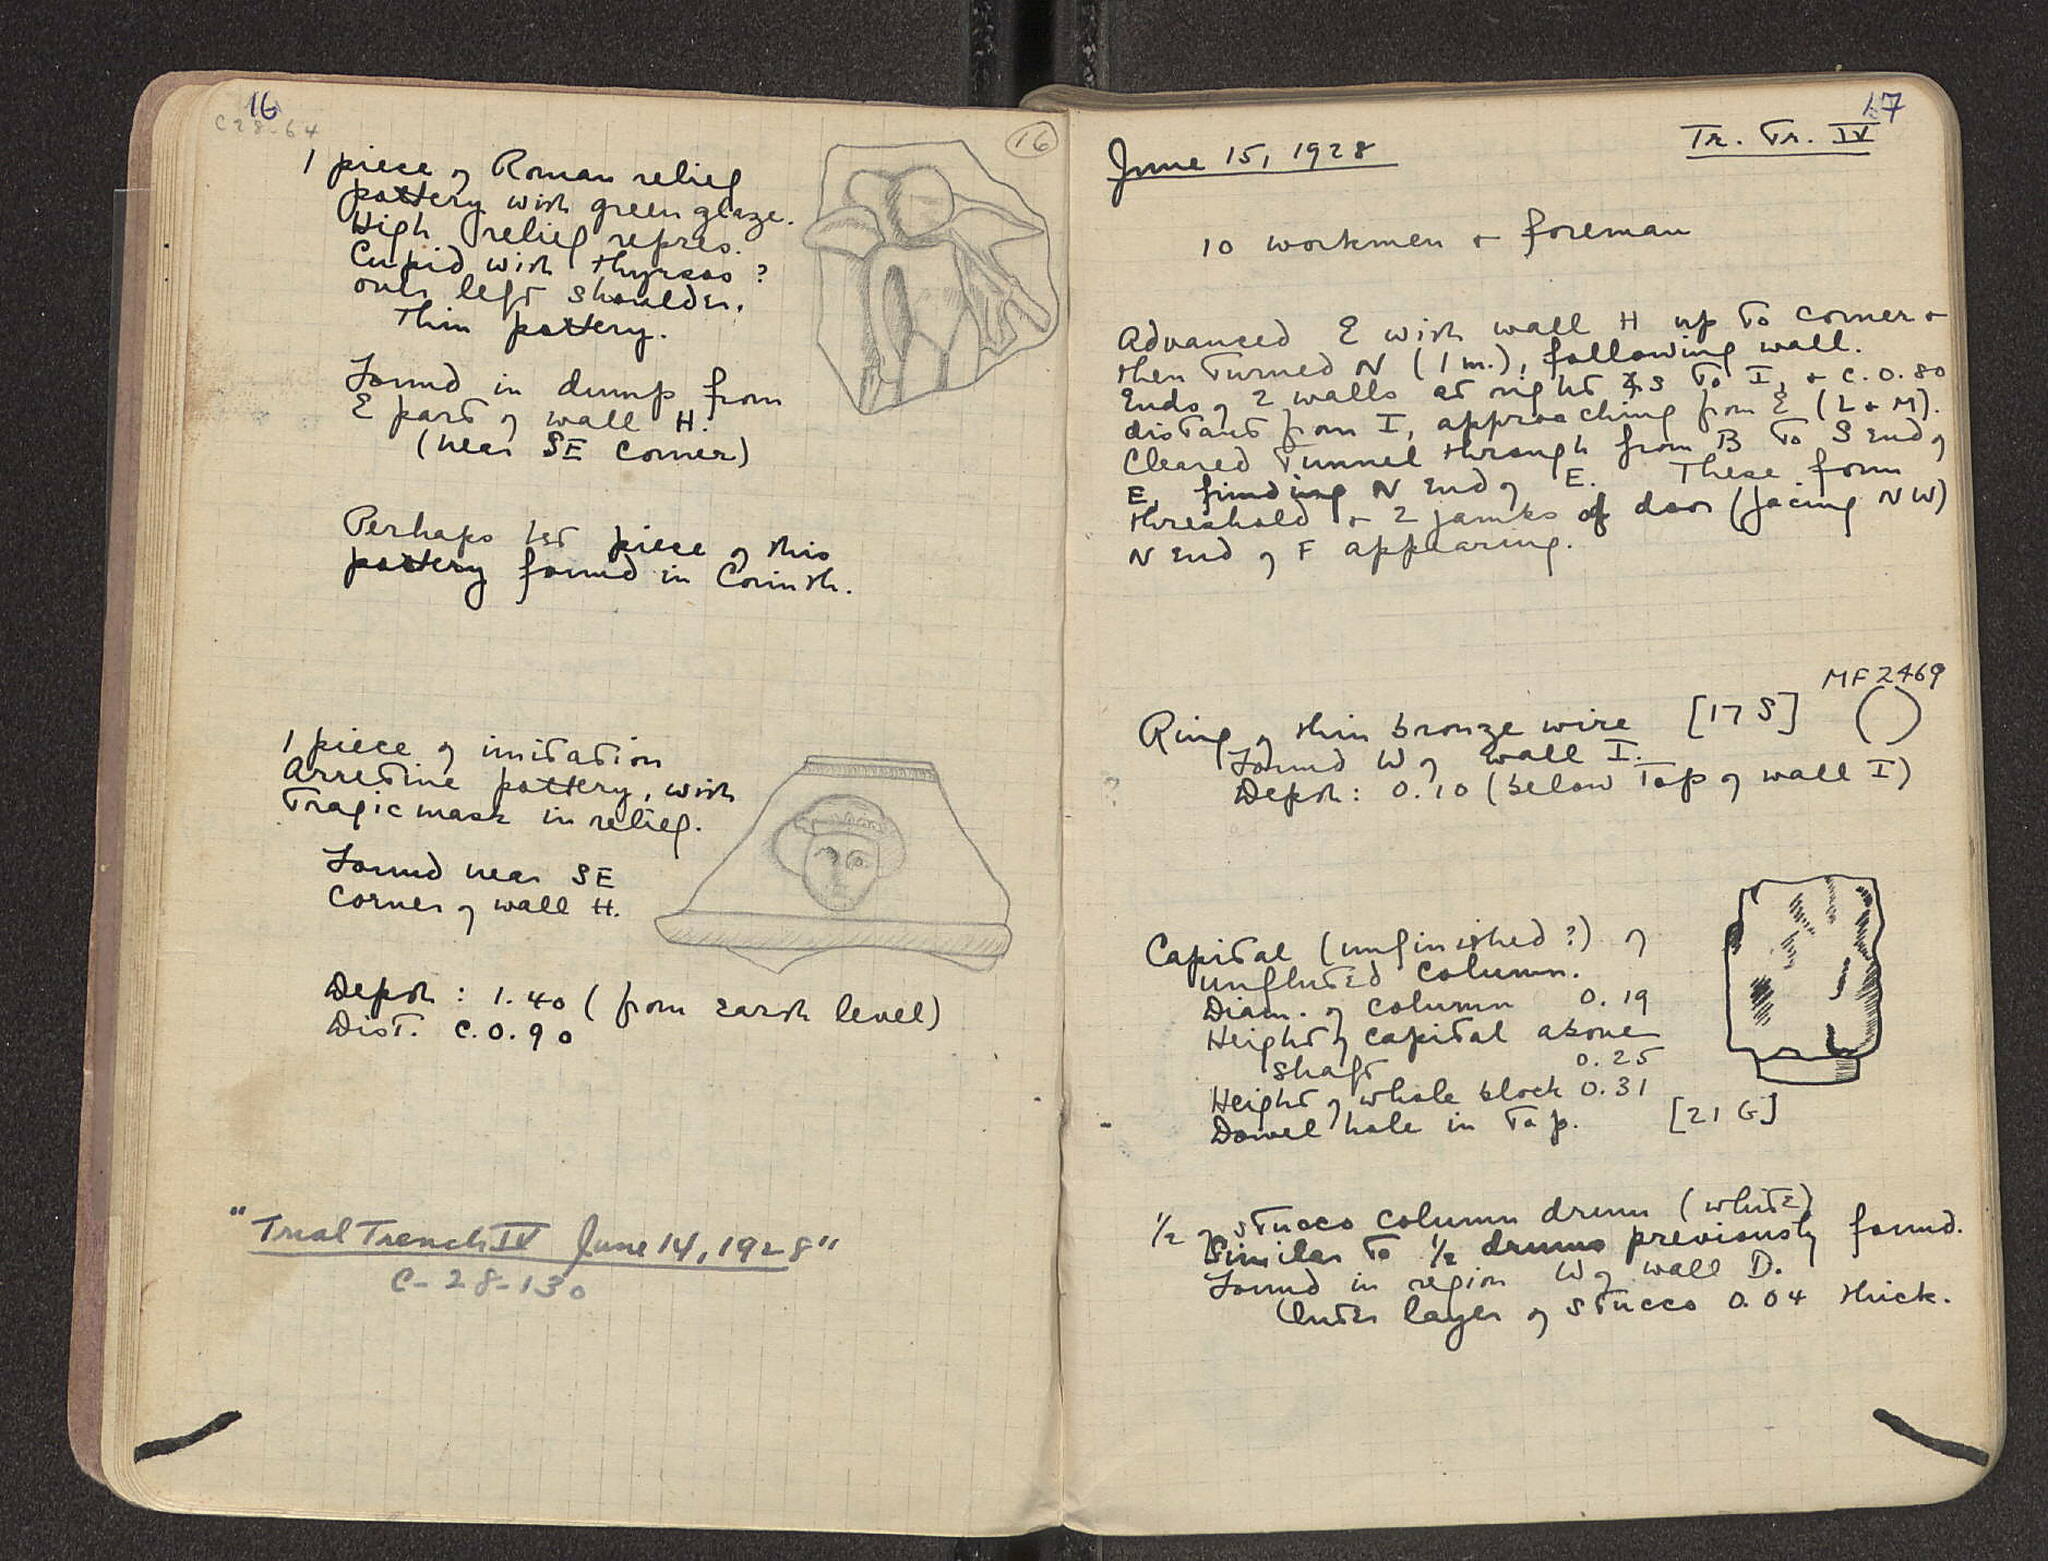 16
C28-64
16
1 piece of Roman relief
pottery with green glaze.
High relief repres.
Cupid with thyrsos ?
over left shoulder.
Thin pottery.
Found in dump from
E part of wall H.
(near SE corner)
Perhaps 1st piece of this
pottery found in Corinth.
1 piece of imitation
Arretine pottery, with
tragic mask in relief.
Found near SE
corner of wall H.
Depth : 1.40 (from earth level)
Dist. c. 0.90
"Trial Trench IV June 14, 1928"
C-28-130
17
June 15, 1928
Tr. Tr. IV
10 workmen + foreman
Advanced E with wall H up to corner +
then turned N (1 m.), following wall.
Ends of 2 walls at right ∡s to I, + c. 0.80
distant from I, approaching from E (L + M).
Cleared tunnel through from B to S end of
E, finding N end of E. These form
threshold + 2 jambs of door (facing NW)
N end of F appearing.
MF 2469
Ring of thin bronze wire [17 S]
Found W of wall I.
Depth : 0.10 (below top of wall I)
Capital (unfinished ?) of
unfluted column.
Diam. of column 0.19
Height of capital above
shaft 0.25
Height of whole block 0.31
Dowel hole in top. [21 G]
1/2 of stucco column drum (white)
Similar to 1/2 drums previously found.
Found in region W of wall D.
Outer layer of stucco 0.04 thick.